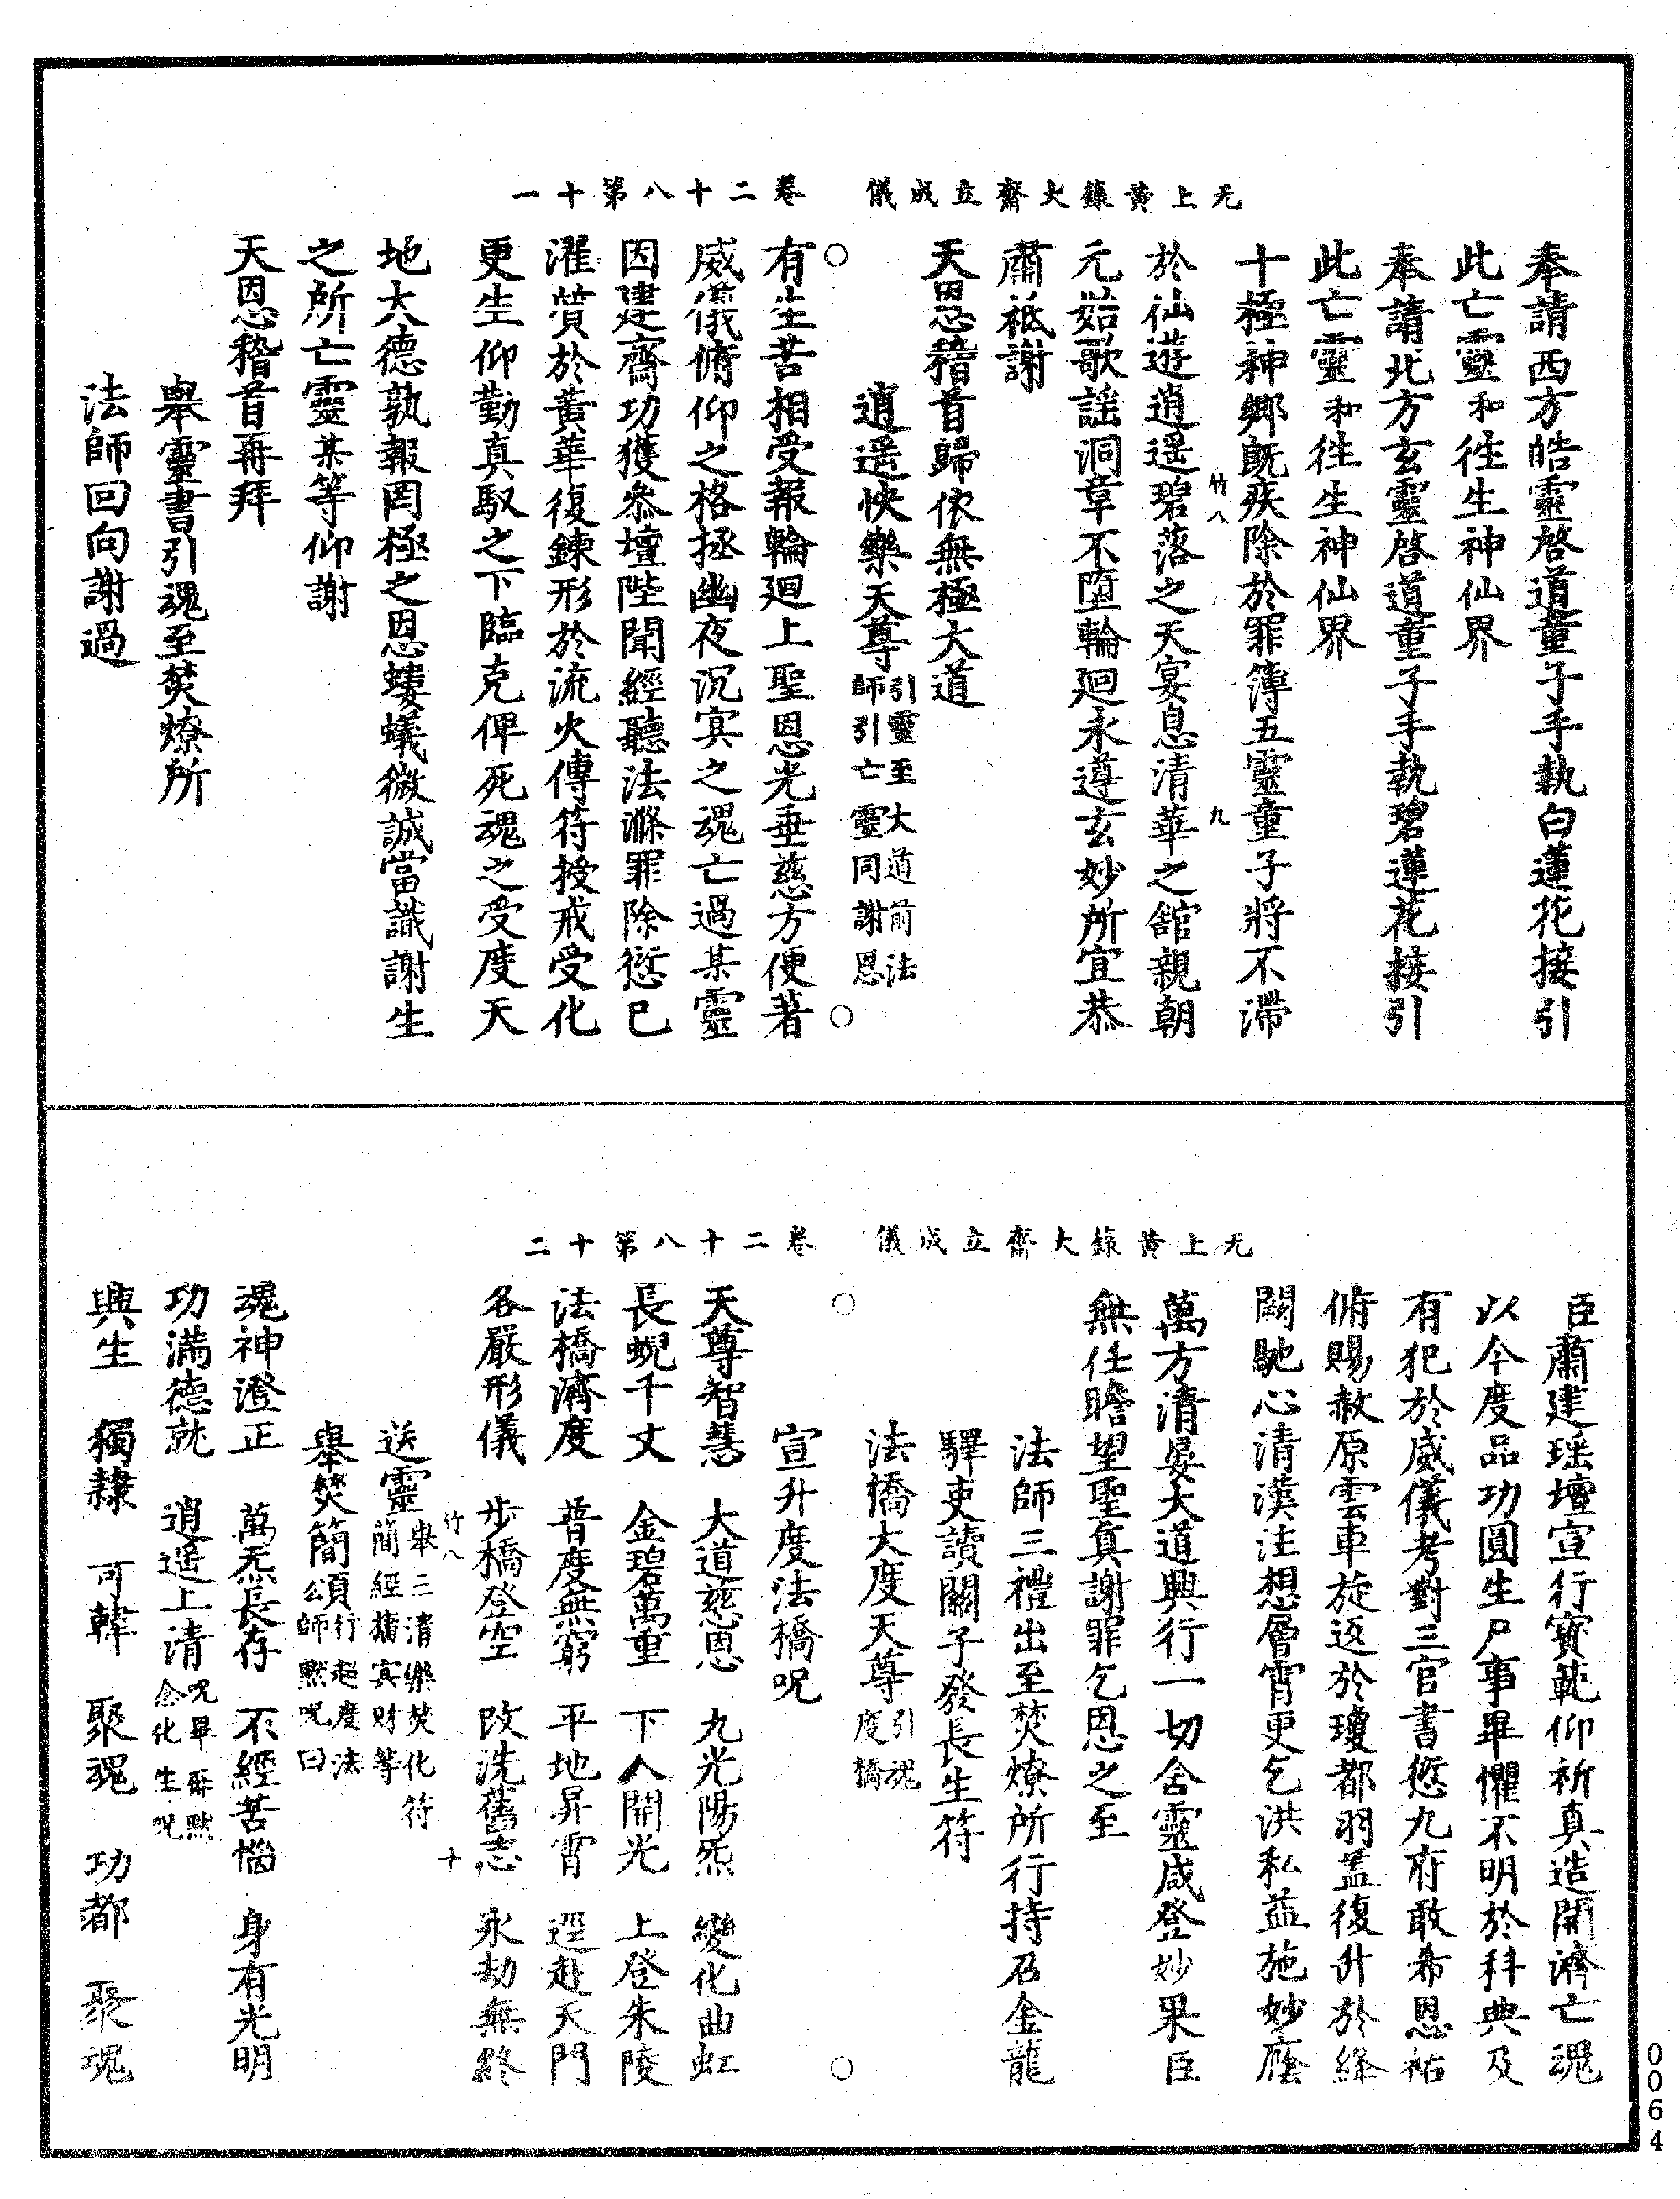 无上黃籙大齋立成儀　卷二十八第十一
奉請西方皓靈啓道童子手執白蓮花接引
此亡靈和徃生神仙界
奉請北方玄靈啓道童子手執碧蓮花接引
此亡靈和徃生神仙界
十極神鄉旣疾除於罪簿五靈童子將不滯
竹八　九
於仙遊逍遥碧落之天宴息清華之舘親朝
元始歌謡洞章不墮輪廻永遵玄妙所宜恭
肅祗謝
天恩稽首歸依無極大道
逍遥快樂天尊引靈至大道前法師引亡靈同謝恩
○　○
有生苦相受報輪廻上聖恩光垂慈方便著
威儀俯仰之格拯幽夜沉㝠之魂亡過某靈
因建齋功獲叅壇陛聞經聽法滌罪除愆已
濯質於黃華復鍊形於流火傳符授戒受化
更生仰勤真馭之下臨克俾死魂之受度天
地大德孰報罔極之恩螻蟻微誠當識謝生
之所亡靈某等仰謝
天恩稽首再拜
舉靈書引魂至焚燎所
法師回向謝過
无上黃籙大齋立成儀　卷二十八第十二
臣肅建瑶壇宣行寳範仰祈真造開濟亡魂
以今度品功圓生尸事畢懼不明於科典及
有犯於威儀考對三官書愆九府敢希恩祐
俯賜赦原雲車旋返於瓊都羽盖復升於絳
闕馳心清漢注想層霄更乞洪私益施妙廕
萬方清晏大道興行一切含靈咸登妙果臣
無任瞻望聖真謝罪乞恩之至
法師三禮出至焚燎所行持召金龍
驛吏讀關子發長生符
法橋大度天尊引魂度橋
○　○
宣升度法橋呪
天尊智慧　大道慈恩　九光陽炁　變化曲虹
長蜺千丈　金碧萬重　下入開光　上登朱陵
法橋濟度　普度無窮　平地昇霄　逕赴天門
各嚴形儀　步橋登空　改洗舊志　永劫無終
竹八　十
送靈舉三清樂焚化符簡經㨿㝠財等
舉焚簡頌行超度法師黙呪曰
魂神澄正　萬炁長存　不經苦惱　身有光明
功滿德就　逍遥上清呪畢再黙念化生呪
興生　獨隸　可韓　聚魂　功都　聚魂
0064